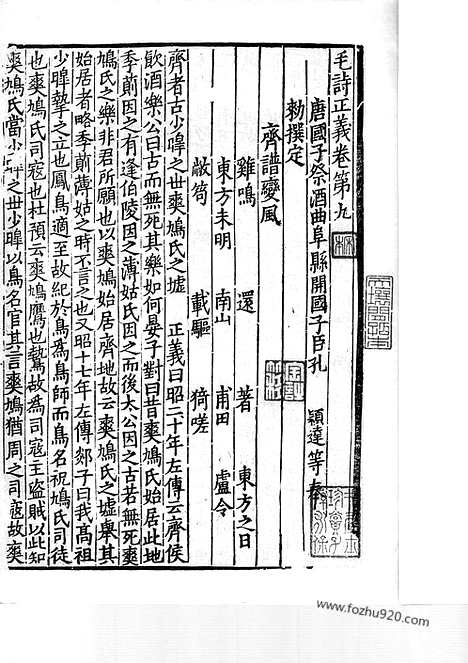 毛詩正義卷第九
唐國子祭酒曲阜縣開國子臣孔 穎達等奉
勑撰定
齊譜變風
雞鳴 還 著 東方之日
東方未明 南山 甫田 盧令
敝笱 載驅 猗嗟
齊者古少皞之世爽鳩氏之墟 正義曰昭二十年左傳云齊侯
飲酒樂公曰古而無死其樂如何晏子對曰昔爽鳩氏始居此地
季萴因之有逢伯陵因之薄姑氏因之而後太公因之古若無死爽
鳩氏之樂非君所願也以爽鳩始居齊地故云爽鳩氏之墟舉其
始居者略季萴薄姑之時不言之也又昭十七年左傳郯子曰我髙祖
少皞摯之立也鳳鳥適至故紀於鳥為鳥師而鳥名祝鳩氏司徒
也爽鳩氏司寇也杜預云爽鳩鷹也鷙故為司寇主盜賊以此知
爽鳩氏當少皞之世少皞以鳥名官其言爽鳩猶周之司寇故爽
www.fozhu920.com